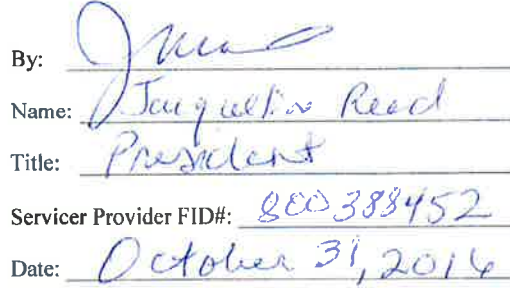 By:
Name: Jacquelin Reed
Title: President
Servicer Provider FID#: 800388452
Date: October 31, 2016